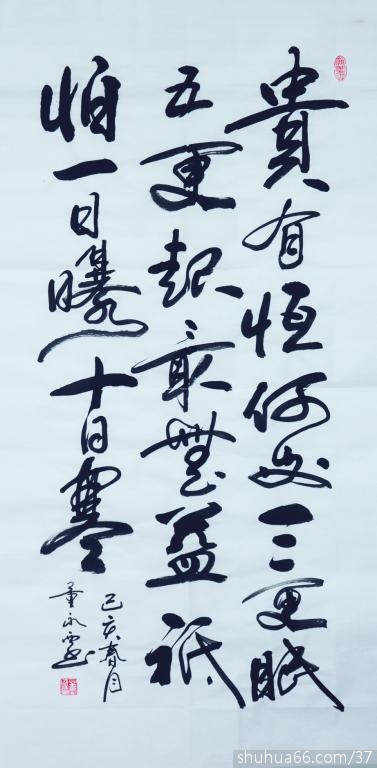 貴有恆何必三更眠
五更起最無益祇
怕一日曝十日寒
己亥春月
shuhua66.com/37